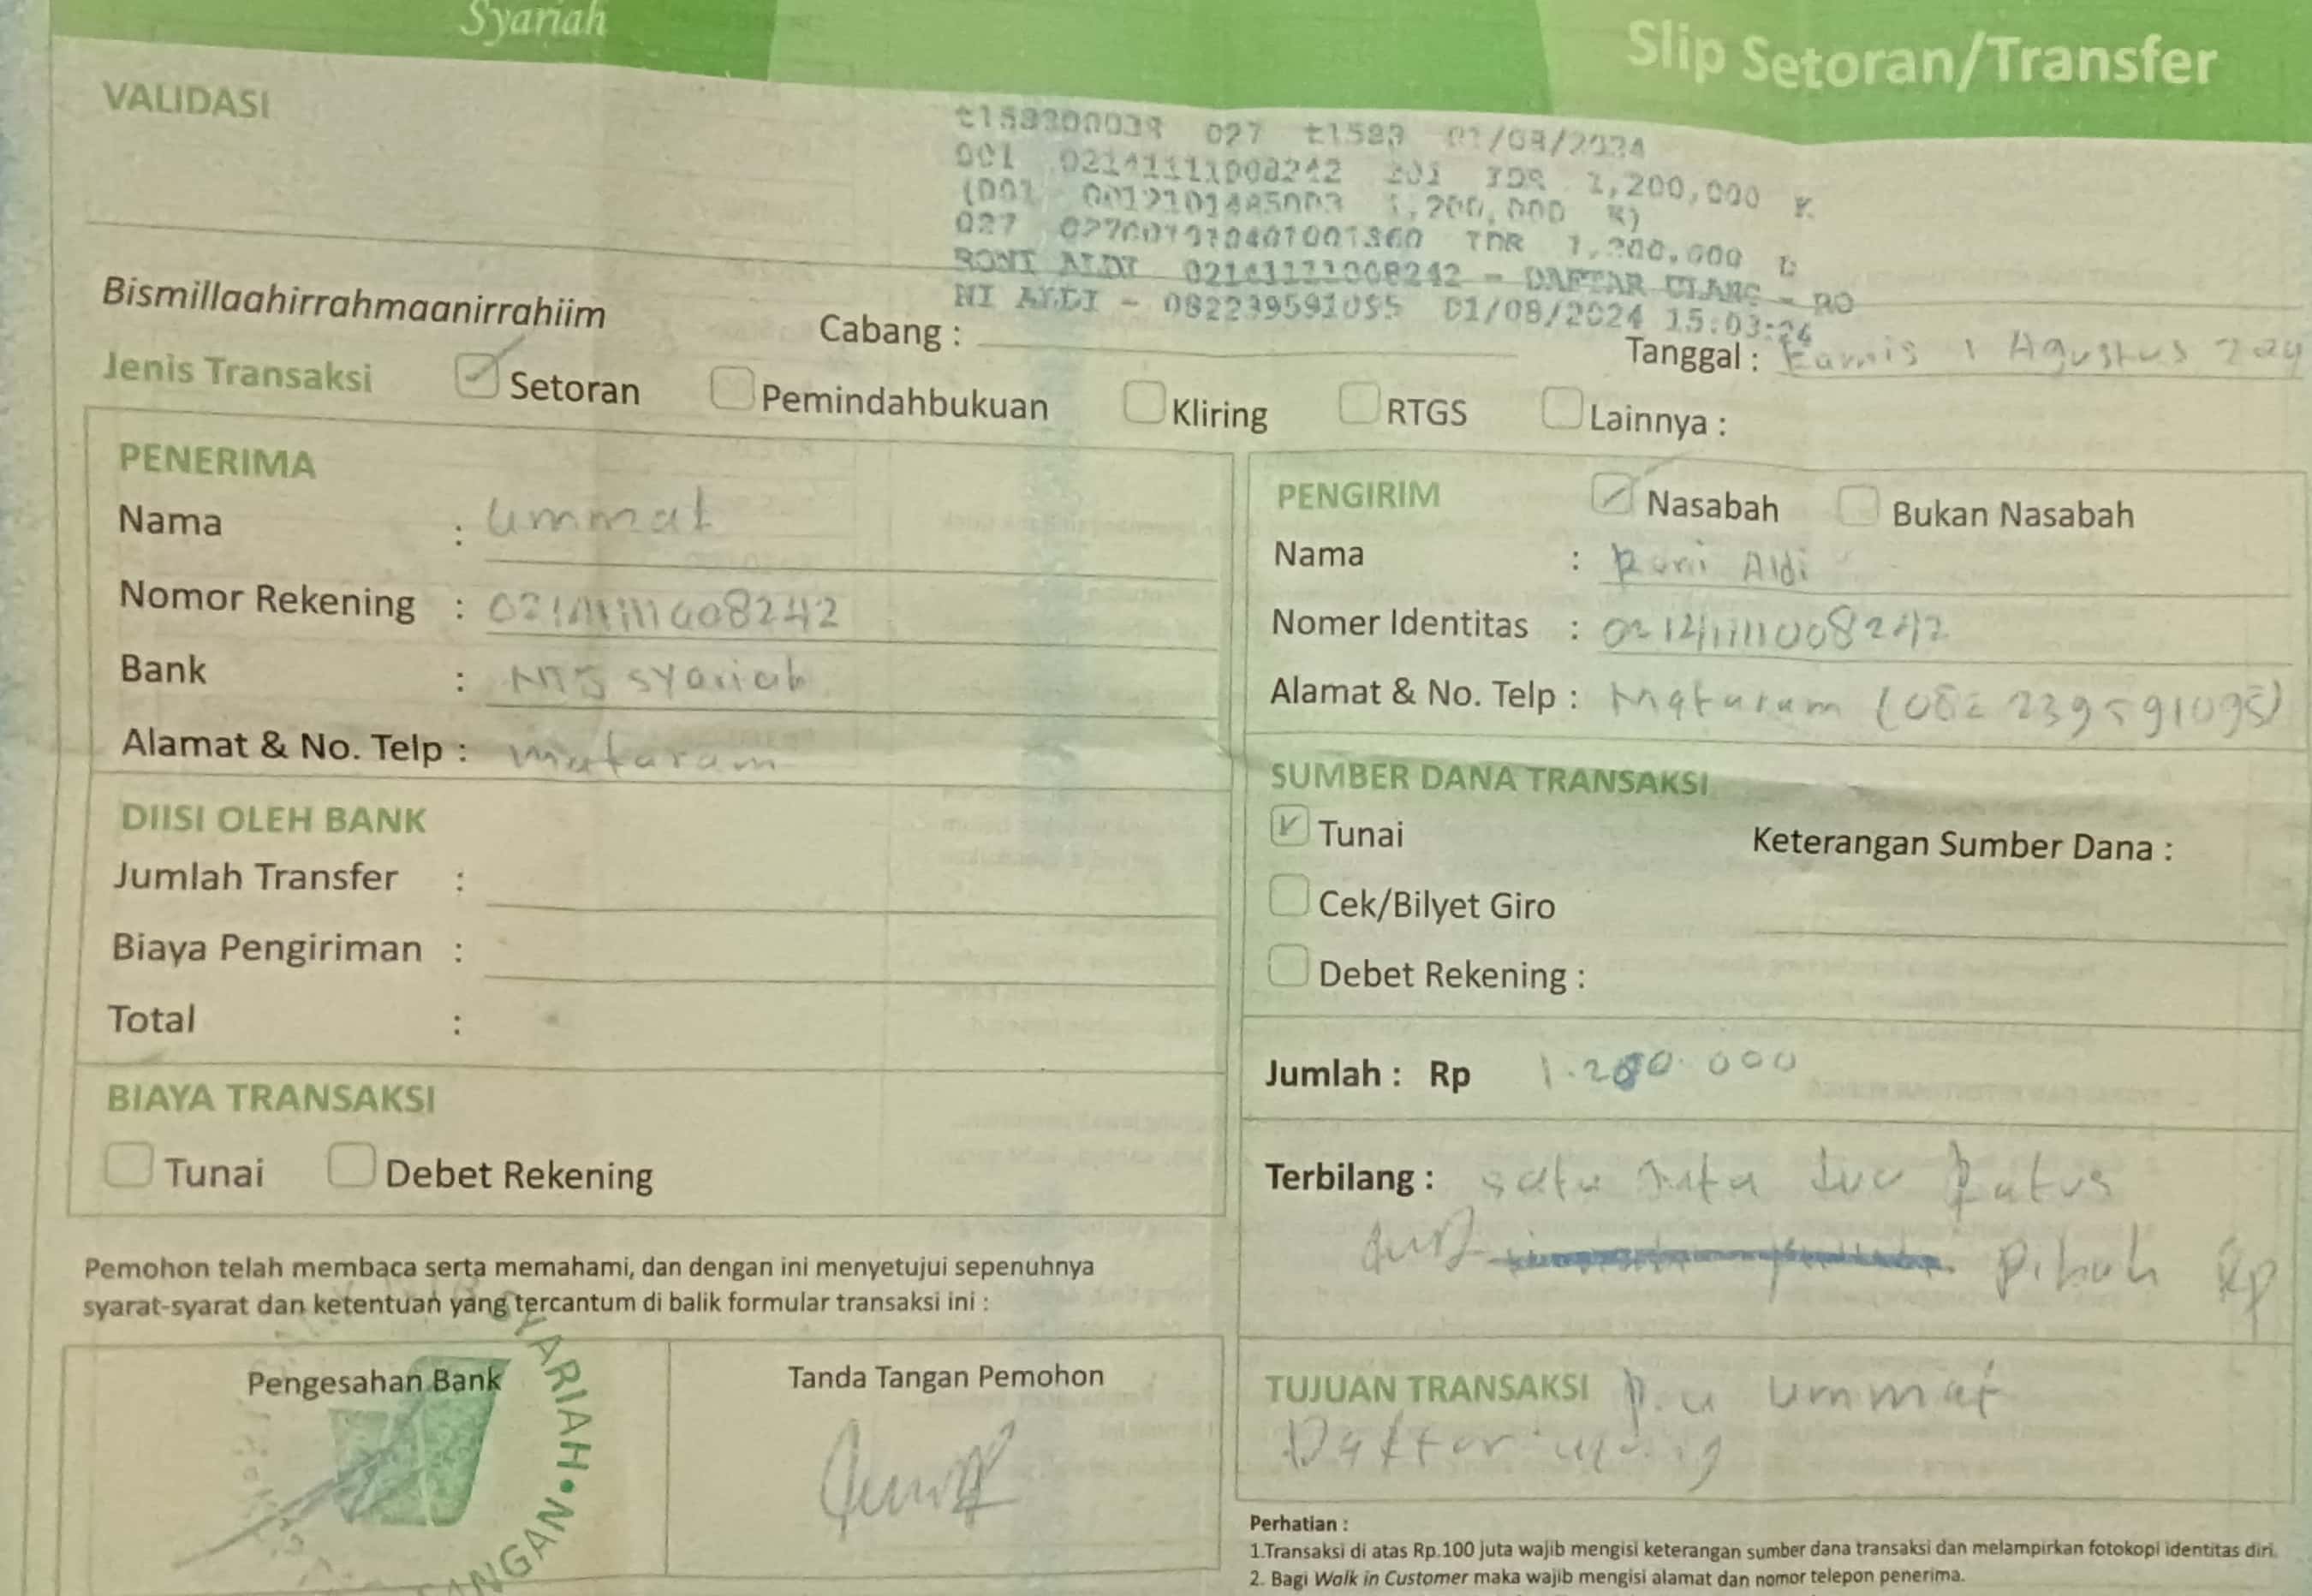 Syariah
Slip Setoran/Transfer
VALIDASI
027 01/08/2024
001 02141111008242 201 IDR 1,200,000 K
(001 1,200,000 K)
027 IDR 1,200,000 D
RONI ALDI 02141111008242 - DAFTAR ULANG - RO
NI ALDI - 082239591095 01/08/2024 15:03:24
Bismillaahirrahmaanirrahiim
Cabang :
Tanggal : Kamis 1 Agustus 2024
Jenis Transaksi Setoran Pemindahbukuan Kliring RTGS Lainnya :
PENERIMA
Nama : ummat
Nomor Rekening : 02141111008242
Bank : NTB syariah
Alamat & No. Telp : mataram
DIISI OLEH BANK
Jumlah Transfer :
Biaya Pengiriman :
Total :
BIAYA TRANSAKSI
Tunai Debet Rekening
Pemohon telah membaca serta memahami, dan dengan ini menyetujui sepenuhnya
syarat-syarat dan ketentuan yang tercantum di balik formular transaksi ini :
Pengesahan Bank
SYARIAH
Tanda Tangan Pemohon
PENGIRIM Nasabah Bukan Nasabah
Nama : Roni Aldi
Nomer Identitas : 02141111008242
Alamat & No. Telp : Mataram (082239591095)
SUMBER DANA TRANSAKSI
Tunai
Keterangan Sumber Dana :
Cek/Bilyet Giro
Debet Rekening :
Jumlah : Rp 1.200.000
Terbilang : satu Juta dua Ratus
Rp
TUJUAN TRANSAKSI ummat
Daftar ulang
Perhatian :
1.Transaksi di atas Rp.100 juta wajib mengisi keterangan sumber dana transaksi dan melampirkan fotokopi identitas diri.
2. Bagi Walk in Customer maka wajib mengisi alamat dan nomor telepon penerima.